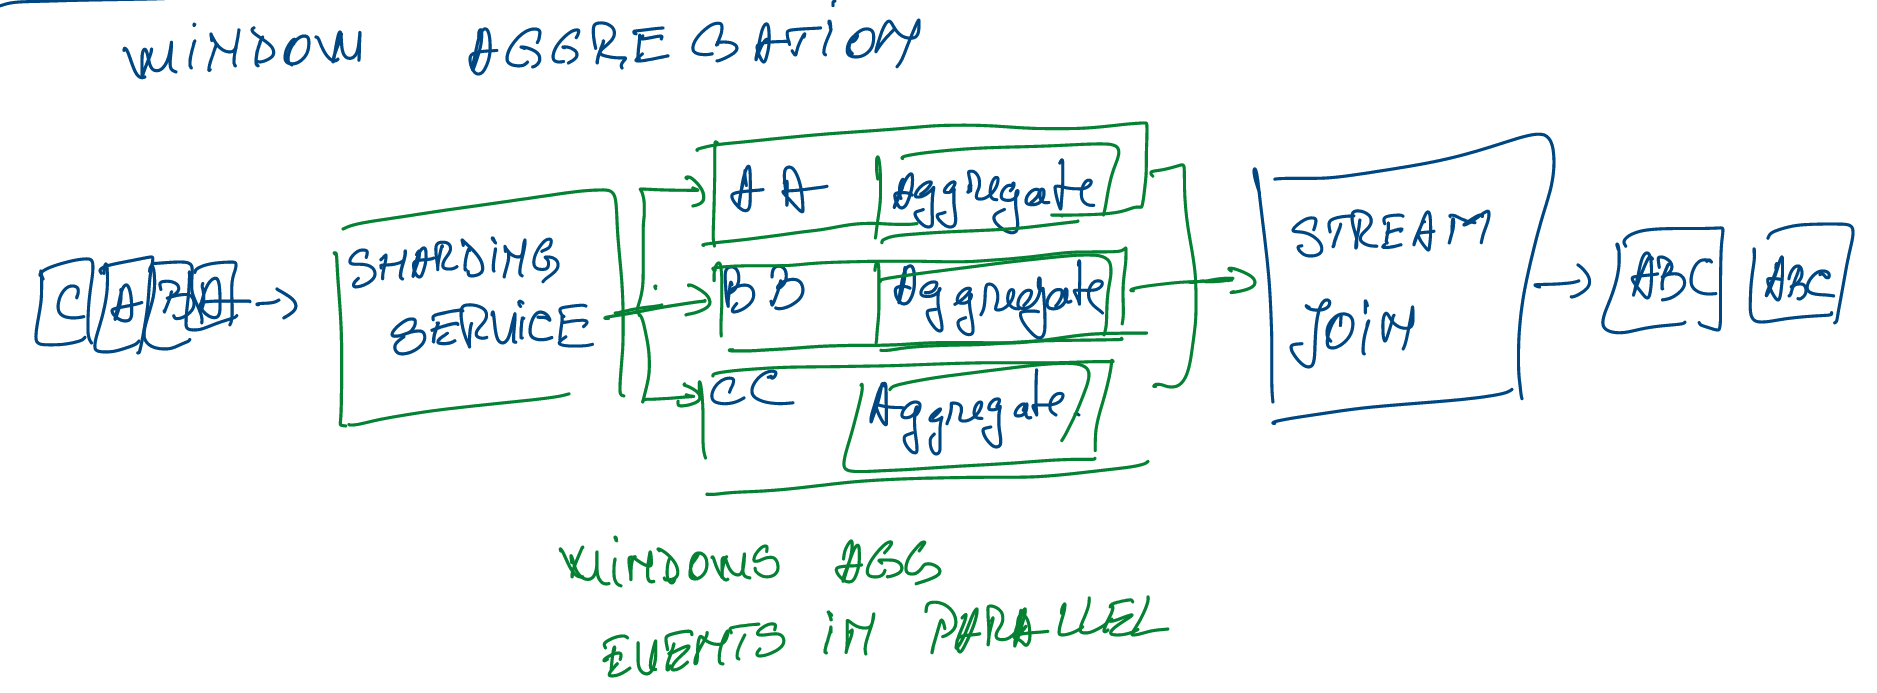 WINDOW AGGREGATION
C A B A
SHARDING
SERVICE
AA Aggregate
BB Aggregate
CC Aggregate
STREAM
JOIN
ABC ABC
WINDOWS AGG
EVENTS IN PARALLEL